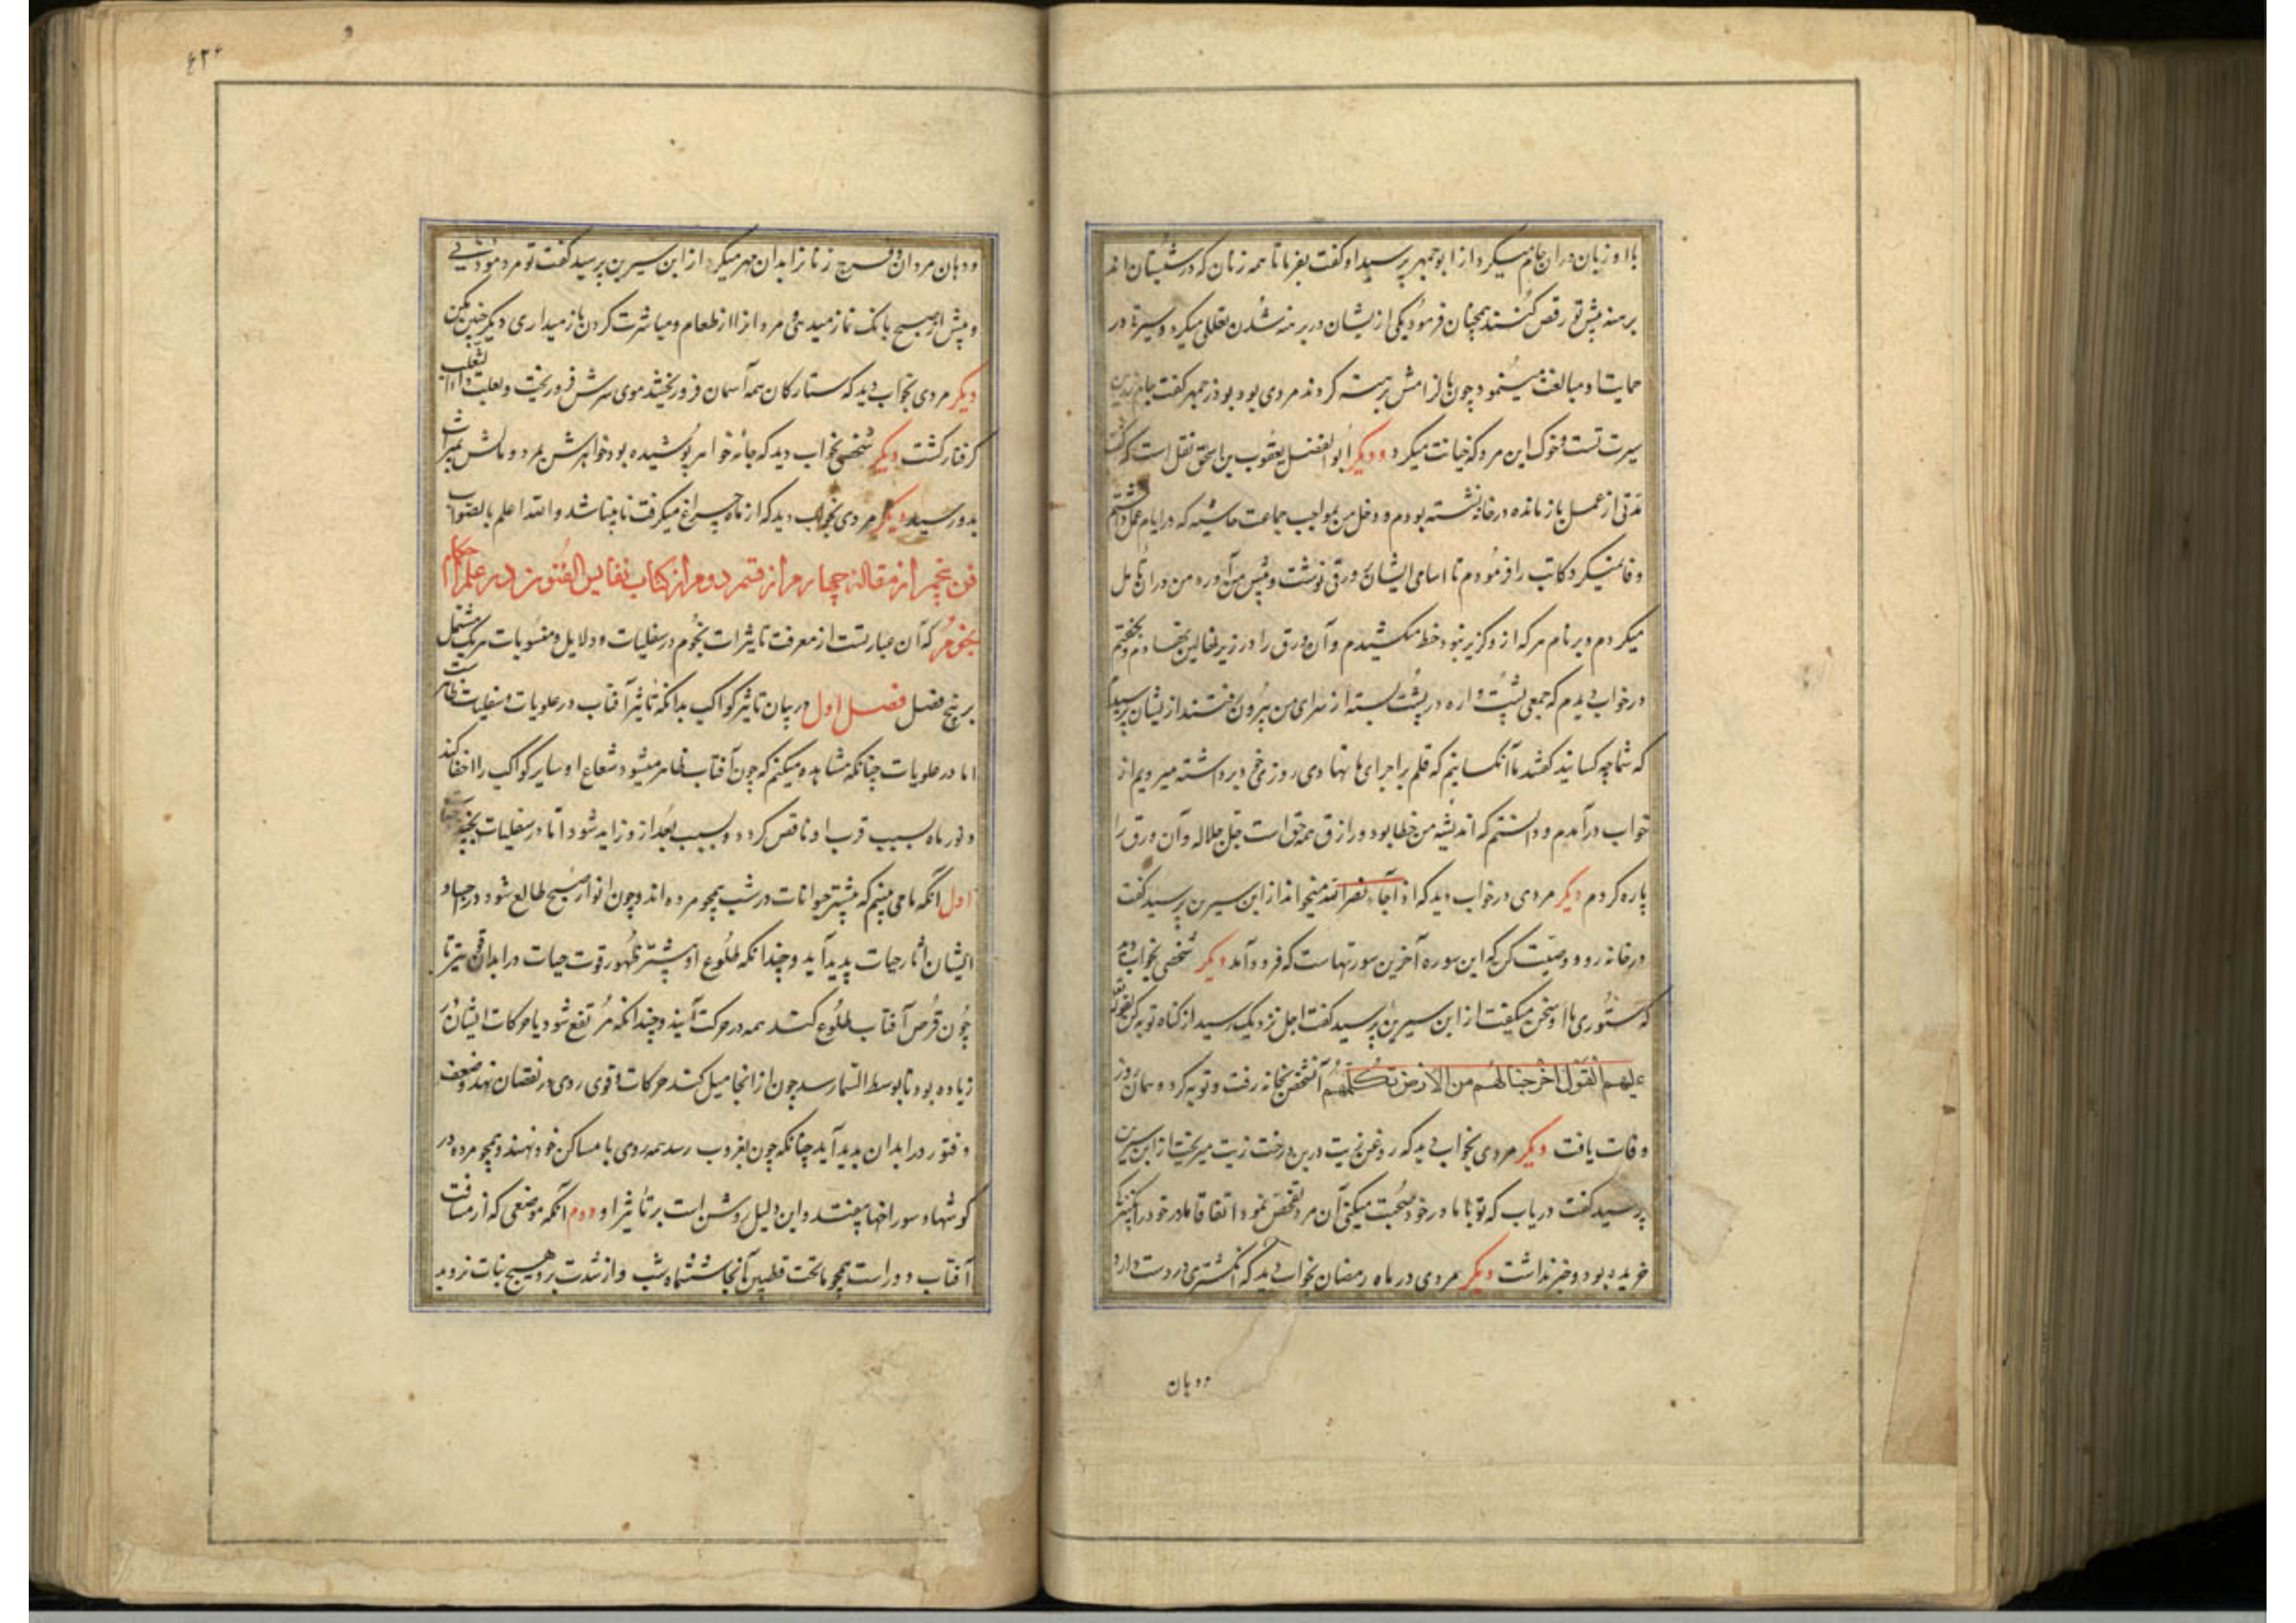 با او زبان در ان جام میکرد از ابوجمهر پرسید او گفت بفرما تا همه زنان که در شبستان اند
برهنه پیش تو رقص کنند همچنان فرمود یکی از یشان در برهنه شدن تعللی میکرد و سیرة در
حمایت او مبالغت مینمود چون بالزامش برهنه کردند مردی بود بوذرجمهر گفت جام زرین
سیرت تست و خوک این مرد که خیانت میکرد و دیگر ابوالفضل یعقوب بن اسحق نقل است که گفت
مدتی از عمل باز مانده در خانه نشسته بودم و دخل من بمواجب جماعت حاشیه که در ایام عمل داشتم
وفا نمیکرد کاتب را فرمودم تا اسامی ایشان بر ورقی نوشت و پیش من آورد من در ان تامل
میکردم و بر نام هر که ازو گزیر نبود خط میکشیدم و آن ورق را در زیر نهالین نهادم و بخفتم
در خواب دیدم که جمعی پشتواره در پشت بسته از سرای من بیرون رفتند از یشان پرسیدم
که شما چه کسانید گفتند ما آنکسانیم که قلم بر اجرای ما نهادی روزی خود برداشته میرویم از
خواب درآمدم و دانستم که اندیشه من خطا بود و رازق همه حق است جل جلاله و آن ورق را
پاره کردم دیگر مردی در خواب دید که اذا جاء نصر الله میخواند از ابن سیرین پرسید گفت
در خانه رو و وصیت کن که این سوره آخرین سورتهاست که فرود آمد دیگر شخصی بخواب دید
که ستوری با او سخن میگفت از ابن سیرین پرسید گفت اجل نزدیک رسید از گناه توبه کن
علیهم القول اخرجنا لهم دابة من الارض تکلمهم آنشخص بخانه رفت و توبه کرد و همان روز
وفات یافت دیگر مردی بخواب دید که روغن زیت در بن درخت زیت میریخت از ابن سیرین
پرسید گفت دریاب که تو با مادر خود صحبت میکنی آن مرد تفحص نمود اتفاقا مادر خود را بکنیزکی
خریده بود و خبر نداشت دیگر مردی در ماه رمضان بخواب دید که انگشتری در دست دارد
و دهان
و دهان مردان و فرج زنانرا بدان مهر میکرد از ابن سیرین پرسید گفت تو مرد موذنی
و پیش از صبح بانک نماز میدهی و مردانرا از طعام و مباشرت کردن باز میداری دیگر چنین مکن
دیگر مردی بخواب دید که ستارکان همه آسمان فرو ریختند موی سرش فرو ریخت و بعلت داء الثعلب
گرفتار گشت دیگر شخصی بخواب دید که جامه خواهر پوشیده بود خواهرش بمرد و مالش بمیراث
بدو رسید دیگر مردی بخواب دید که از ماه چراغ میگرفت نابینا شد والله اعلم بالصواب
فن پنجم از مقاله چهارم از قسم دوم از کتاب نفایس الفنون در علم احکام
نجوم که آن عبارتست از معرفت تاثیرات نجوم در سفلیات و دلایل و منسوبات هر یک مشتمل
بر پنج فصل فصل اول در بیان تاثیر کواکب بدانکه تاثیر آفتاب در علویات و سفلیات ظاهر ست
اما در علویات چنانکه مشاهده میکنیم که چون آفتاب ظاهر میشود شعاع او سایر کواکب را اخفا کند
و نور ماه بسبب قرب او ناقص گردد و بسبب بعد ازو زاید شود اما در سفلیات بچند
اول انکه ما می بینیم که بیشتر حیوانات در شب همچو مرده اند و چون انوار صبح طالع شود در اجساد
ایشان اثار حیات پدید آید و چندانکه طلوع او بیشتر ظهور قوت حیات در ابدان قوی تر تا
چون قرص آفتاب طلوع کند همه در حرکت آیند و چندانکه مرتفع شود یا حرکات ایشان
زیاده بود تا بوسط السما رسد چون از انجا میل کند حرکات و قوی روی در نقصان نهد و ضعف
و فتور در ابدان پدید آید چنانکه چون بغروب رسد همه روی با مساکن خود نهند و همچو مرده در
گوشها و سوراخها بیفتند و این دلیل روشن است بر تاثیر او دوم آنکه موضعی که از مسافت
آفتاب دور است همچو ما تحت قطبین آنجا ششماه شب و از شدت برد هیچ نبات نروید